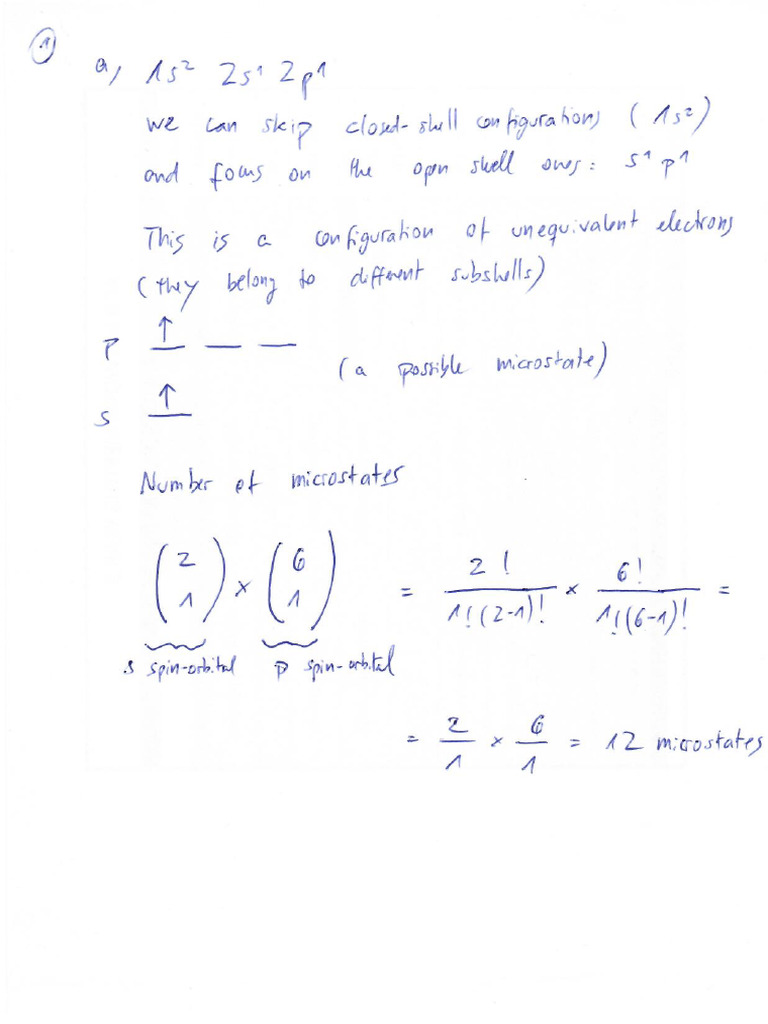 ①
a, 1s² 2s¹ 2p¹
we can skip closed-shell configurations (1s²)
and focus on the open shell ones: s¹ p¹
This is a configuration of unequivalent electrons
(they belong to different subshells)
p ↑ _ _ (a possible microstate)
s ↑
Number of microstates
(2 1) × (6 1) = 2! / 1!(2-1)! × 6! / 1!(6-1)! =
s spin-orbital p spin-orbital
= 2/1 × 6/1 = 12 microstates